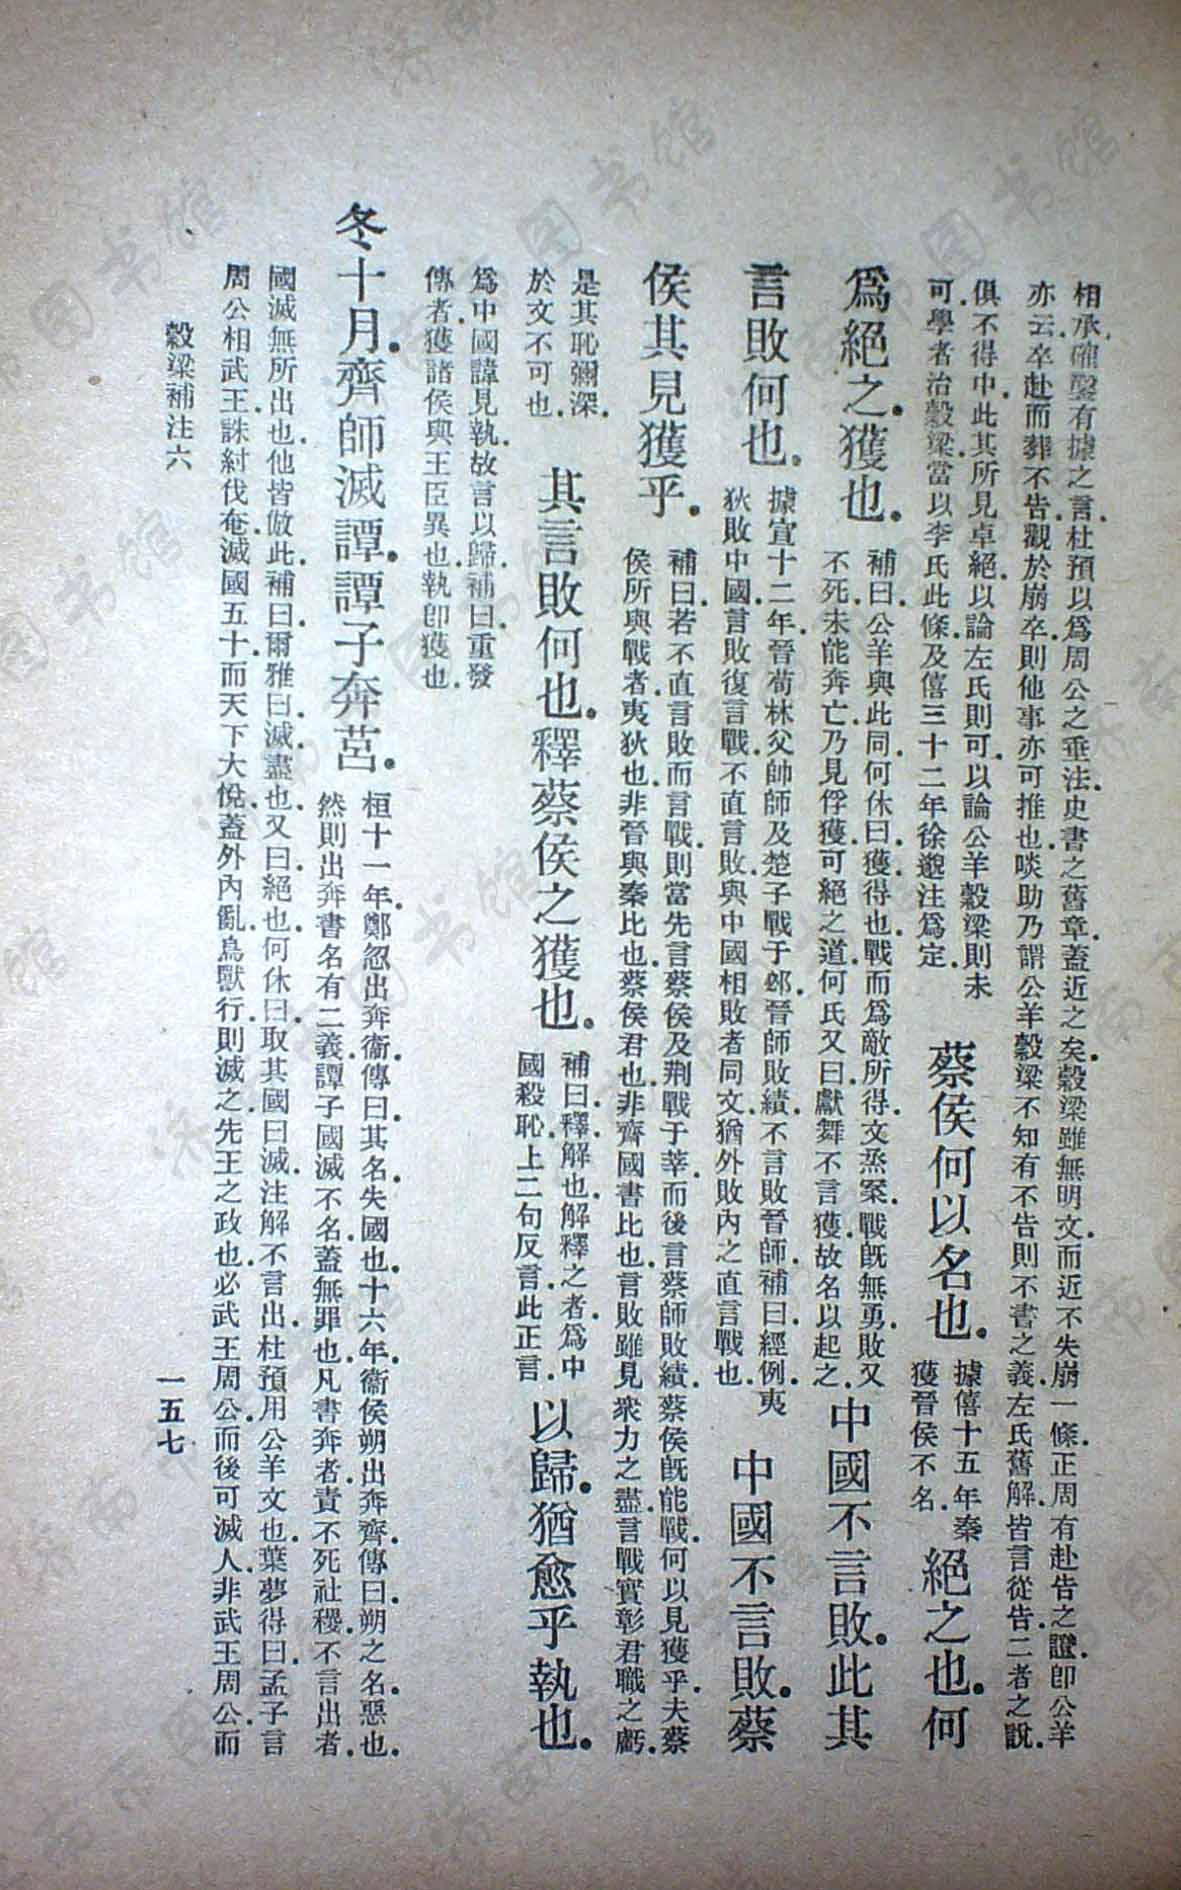 相承確鑿有據之言杜預以爲周公之垂法史書之舊章蓋近之矣穀梁雖無明文而近不失崩一條正周有赴告之證卽公羊
亦云卒赴而葬不告觀於崩卒則他事亦可推也啖助乃謂公羊穀梁不知有不告則不書之義左氏舊解皆言從告二者之說
俱不得中此其所見卓絕以論左氏則可以論公羊穀梁則未
可學者治穀梁當以李氏此條及僖三十二年徐邈注爲定
蔡侯何以名也
據僖十五年秦
獲晉侯不名
絕之也何
爲絕之獲也
補曰公羊與此同何休曰獲得也戰而爲敵所得文烝案戰旣無勇敗又
不死未能奔亡乃見俘獲可絕之道何氏又曰獻舞不言獲故名以起之
中國不言敗此其
言敗何也
據宣十二年晉荀林父帥師及楚子戰于邲晉師敗績不言敗晉師補曰經例夷
狄敗中國言敗復言戰不直言敗與中國相敗者同文猶外敗內之直言戰也
中國不言敗蔡
侯其見獲乎
補曰若不直言敗而言戰則當先言蔡侯及荆戰于莘而後言蔡師敗績蔡侯旣能戰何以見獲乎夫蔡
侯所與戰者夷狄也非晉與秦比也蔡侯君也非齊國書比也言敗雖見衆力之盡言戰實彰君職之虧
是其恥彌深
於文不可也
其言敗何也釋蔡侯之獲也
補曰釋解也解釋之者爲中
國殺恥上二句反言此正言
以歸猶愈乎執也
爲中國諱見執故言以歸補曰重發
傳者獲諸侯與王臣異也執卽獲也
冬十月齊師滅譚譚子奔莒
桓十一年鄭忽出奔衞傳曰其名失國也十六年衞侯朔出奔齊傳曰朔之名惡也
然則出奔書名有二義譚子國滅不名蓋無罪也凡書奔者責不死社稷不言出者
國滅無所出也他皆倣此補曰爾雅曰滅盡也又曰絕也何休曰取其國曰滅注解不言出杜預用公羊文也葉夢得曰孟子言
周公相武王誅紂伐奄滅國五十而天下大悅蓋外內亂鳥獸行則滅之先王之政也必武王周公而後可滅人非武王周公而
穀梁補注六
一五七